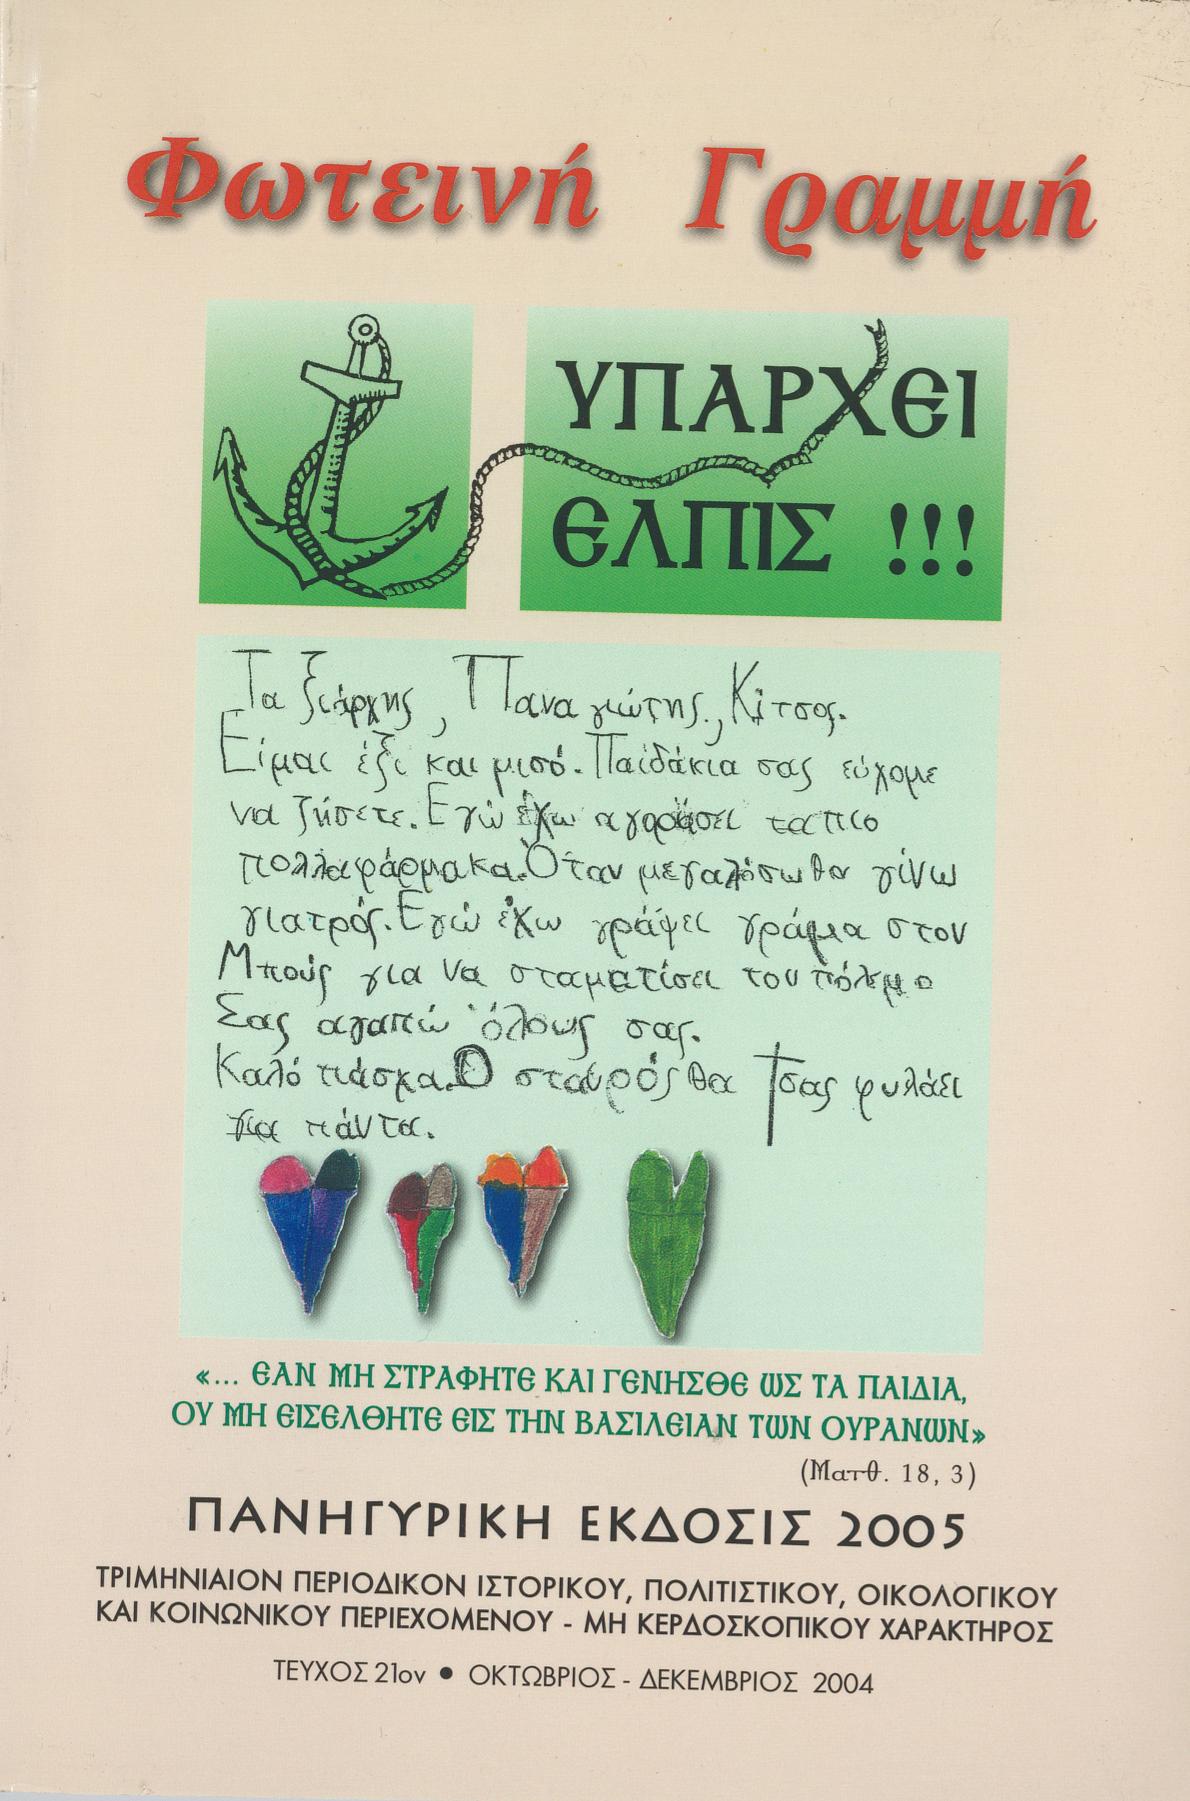 Φωτεινή Γραμμή
ΥΠΑΡΧΕΙ
ΕΛΠΙΣ !!!
Ταξιάρχης, Παναγιώτης, Κίτσος.
Είμαι έξι και μισό. Παιδάκια σας εύχομε
να ζήσετε. Εγώ έχω αγοράσει τα πιο
πολλα φάρμακα. Όταν μεγαλόσω θα γίνω
γιατρός. Εγώ έχω γράψει γράμα στον
Μπούς για να σταματίσει τον πόλεμο
Σας αγαπώ όλους σας.
Καλό πάσχα. Ο σταυρός θα σας φυλάει
για πάντα.
«... ΕΑΝ ΜΗ ΣΤΡΑΦΗΤΕ ΚΑΙ ΓΕΝΗΣΘΕ ΩΣ ΤΑ ΠΑΙΔΙΑ,
ΟΥ ΜΗ ΕΙΣΕΛΘΗΤΕ ΕΙΣ ΤΗΝ ΒΑΣΙΛΕΙΑΝ ΤΩΝ ΟΥΡΑΝΩΝ»
(Ματθ. 18, 3)
ΠΑΝΗΓΥΡΙΚΗ ΕΚΔΟΣΙΣ 2005
ΤΡΙΜΗΝΙΑΙΟΝ ΠΕΡΙΟΔΙΚΟΝ ΙΣΤΟΡΙΚΟΥ, ΠΟΛΙΤΙΣΤΙΚΟΥ, ΟΙΚΟΛΟΓΙΚΟΥ
ΚΑΙ ΚΟΙΝΩΝΙΚΟΥ ΠΕΡΙΕΧΟΜΕΝΟΥ - ΜΗ ΚΕΡΔΟΣΚΟΠΙΚΟΥ ΧΑΡΑΚΤΗΡΟΣ
ΤΕΥΧΟΣ 21ον • ΟΚΤΩΒΡΙΟΣ - ΔΕΚΕΜΒΡΙΟΣ 2004